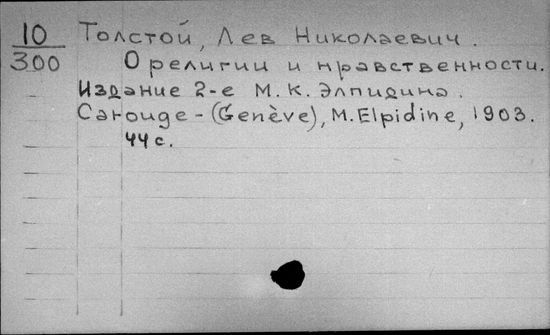 10 Толстой, Лев Николаевич.
300 О религии и нравственности.
Издание 2-е М.К. Элпидина.
Carouge - (Genève), M. Elpidine, 1903.
44 с.